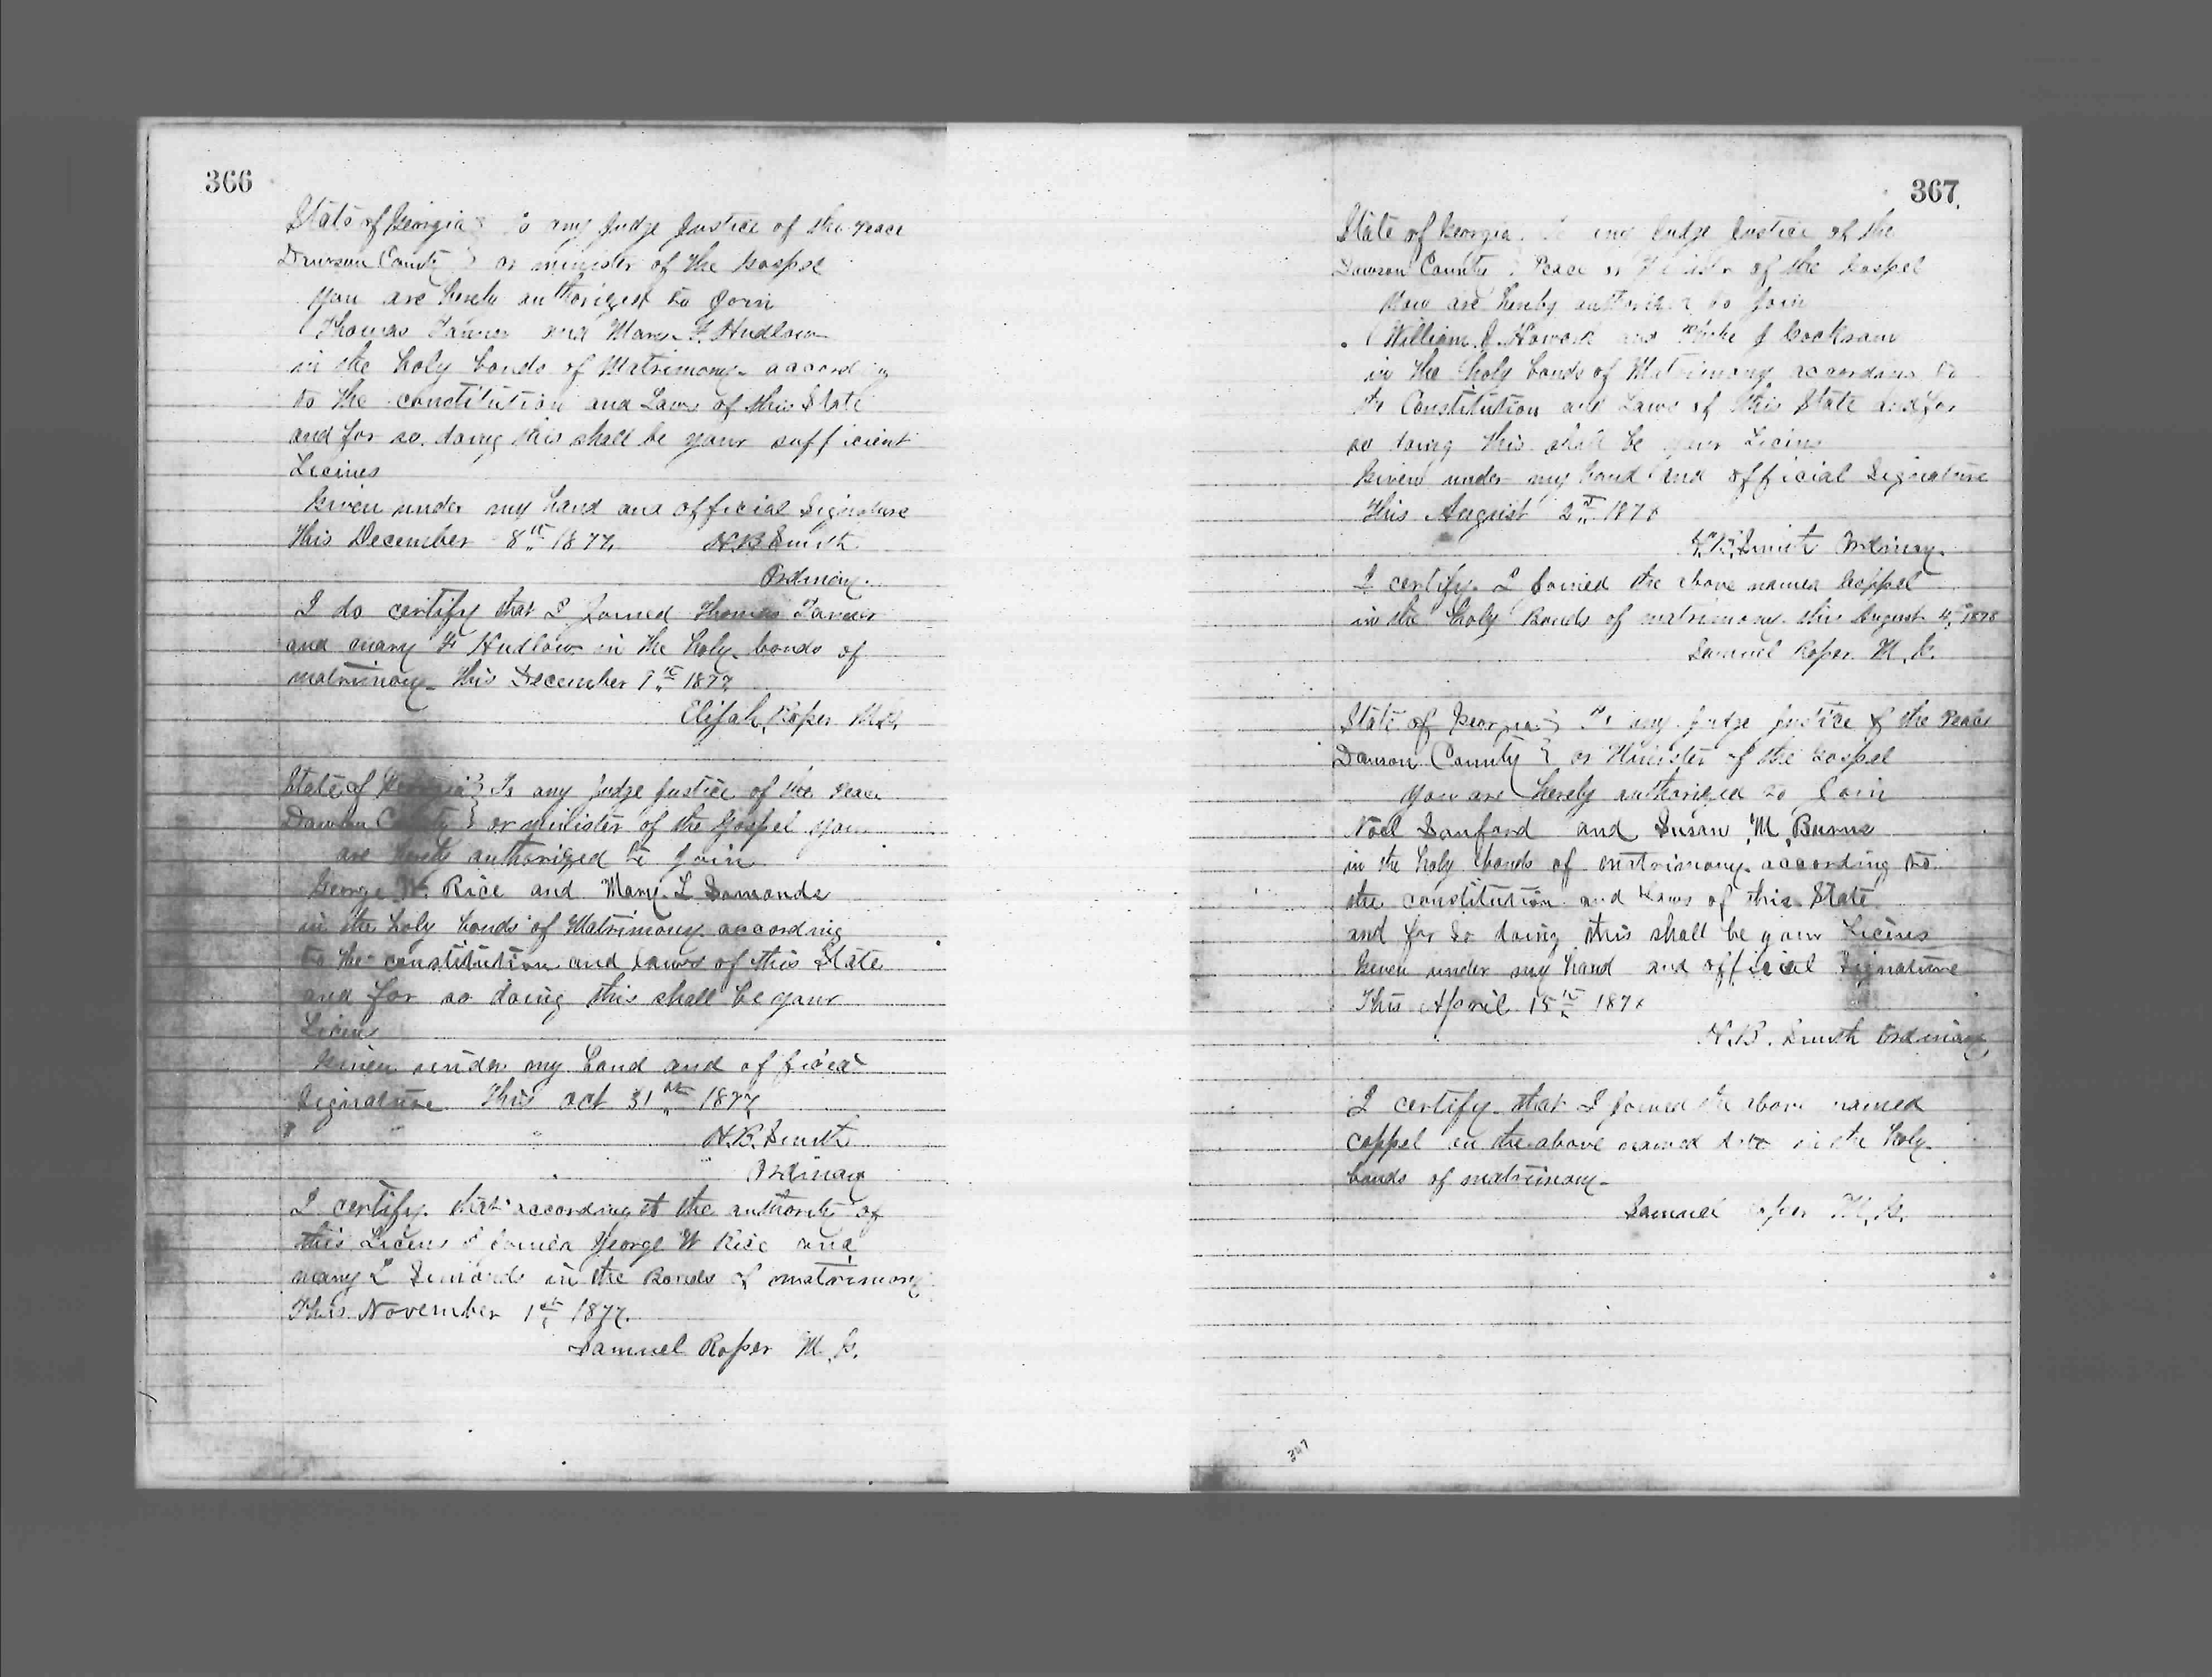 366
State of Georgia To any Judge Justice of the Peace
Dawson County } or minister of the Gospel
you are herely authorized to join
Thomas Tanner and Mary F. Hudlow
in the holy bonds of Matrimony according
to the constitution and Laws of this State
and for so doing this shall be your sufficient
Licines
Given under my hand and official Signature
This December 8th 1877. H.B. Smith
Ordinary.
I do certify that I joined Thomas Tanner
and mary F Hudlow in the holy bonds of
matrimony this December 9th 1877
Elijah Roper M.G.
State of Georgia } To any Judge Justice of the Peace
Dawson County } or minister of the Gospel you
are herely authorized to join
George W. Rice and Mary L
in the holy bonds of Matrimony according
to the constitution and laws of this State
and for so doing this shall be your
Licins
Given under my hand and official
Signature This oct 31st 1877
H.B. Smith
Ordinary
I certify that according to the authority of
this Licins I joined George W Rice and
mary L in the Bonds of matrimony
This November 1st 1877.
Samuel Roper M.G.
367
State of Georgia. To any Judge Justice of the
Dawson County } Peace or Minister of the Gospel
You are hereby authorized to join
William J. Howard and J Cockram
in the holy bonds of Matrimony according to
the Constitution and Laws of this State and for
so doing this shall be your Licins
Given under my hand and official Signature
This August 2nd 1878
H.B. Smith Ordinary.
I certify I joined the above named Coppel
in the holy Bonds of matrimony this August 4th 1878
Samuel Roper M.G.
State of Georgia } To any Judge Justice of the Peace
Dawson County } or Minister of the Gospel
you are herely authorized to Join
Noel Sanford and Susan M. Burns
in the holy bonds of matrimony according to
the constitution and Laws of this State
and for So doing this shall be your Licins
Given under my hand and official Signature
This April 15th 1878
H.B. Smith Ordinary
I certify that I joined the above named
coppel on the above named date in the holy
bonds of matrimony
Samuel Roper M.G.
367